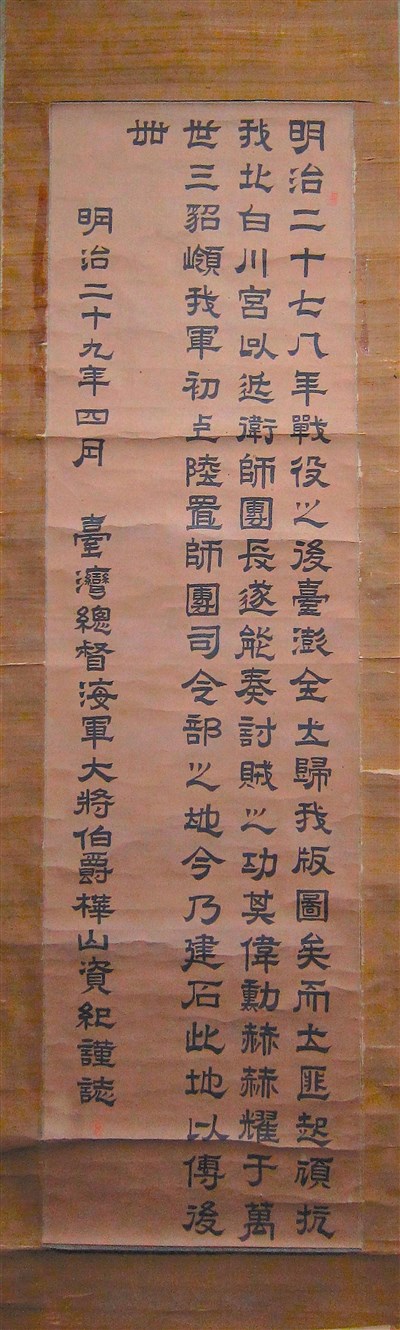 明治二十七八年戰役之後臺澎全土歸我版圖矣而土匪起頑抗
我北白川宮以近衛師團長遂能奏討賊之功其偉勳赫赫耀于萬
世三貂嶺我軍初上陸置師團司令部之地今乃建石此地以傳後
世
明治二十九年四月 臺灣總督海軍大將伯爵樺山資紀謹誌